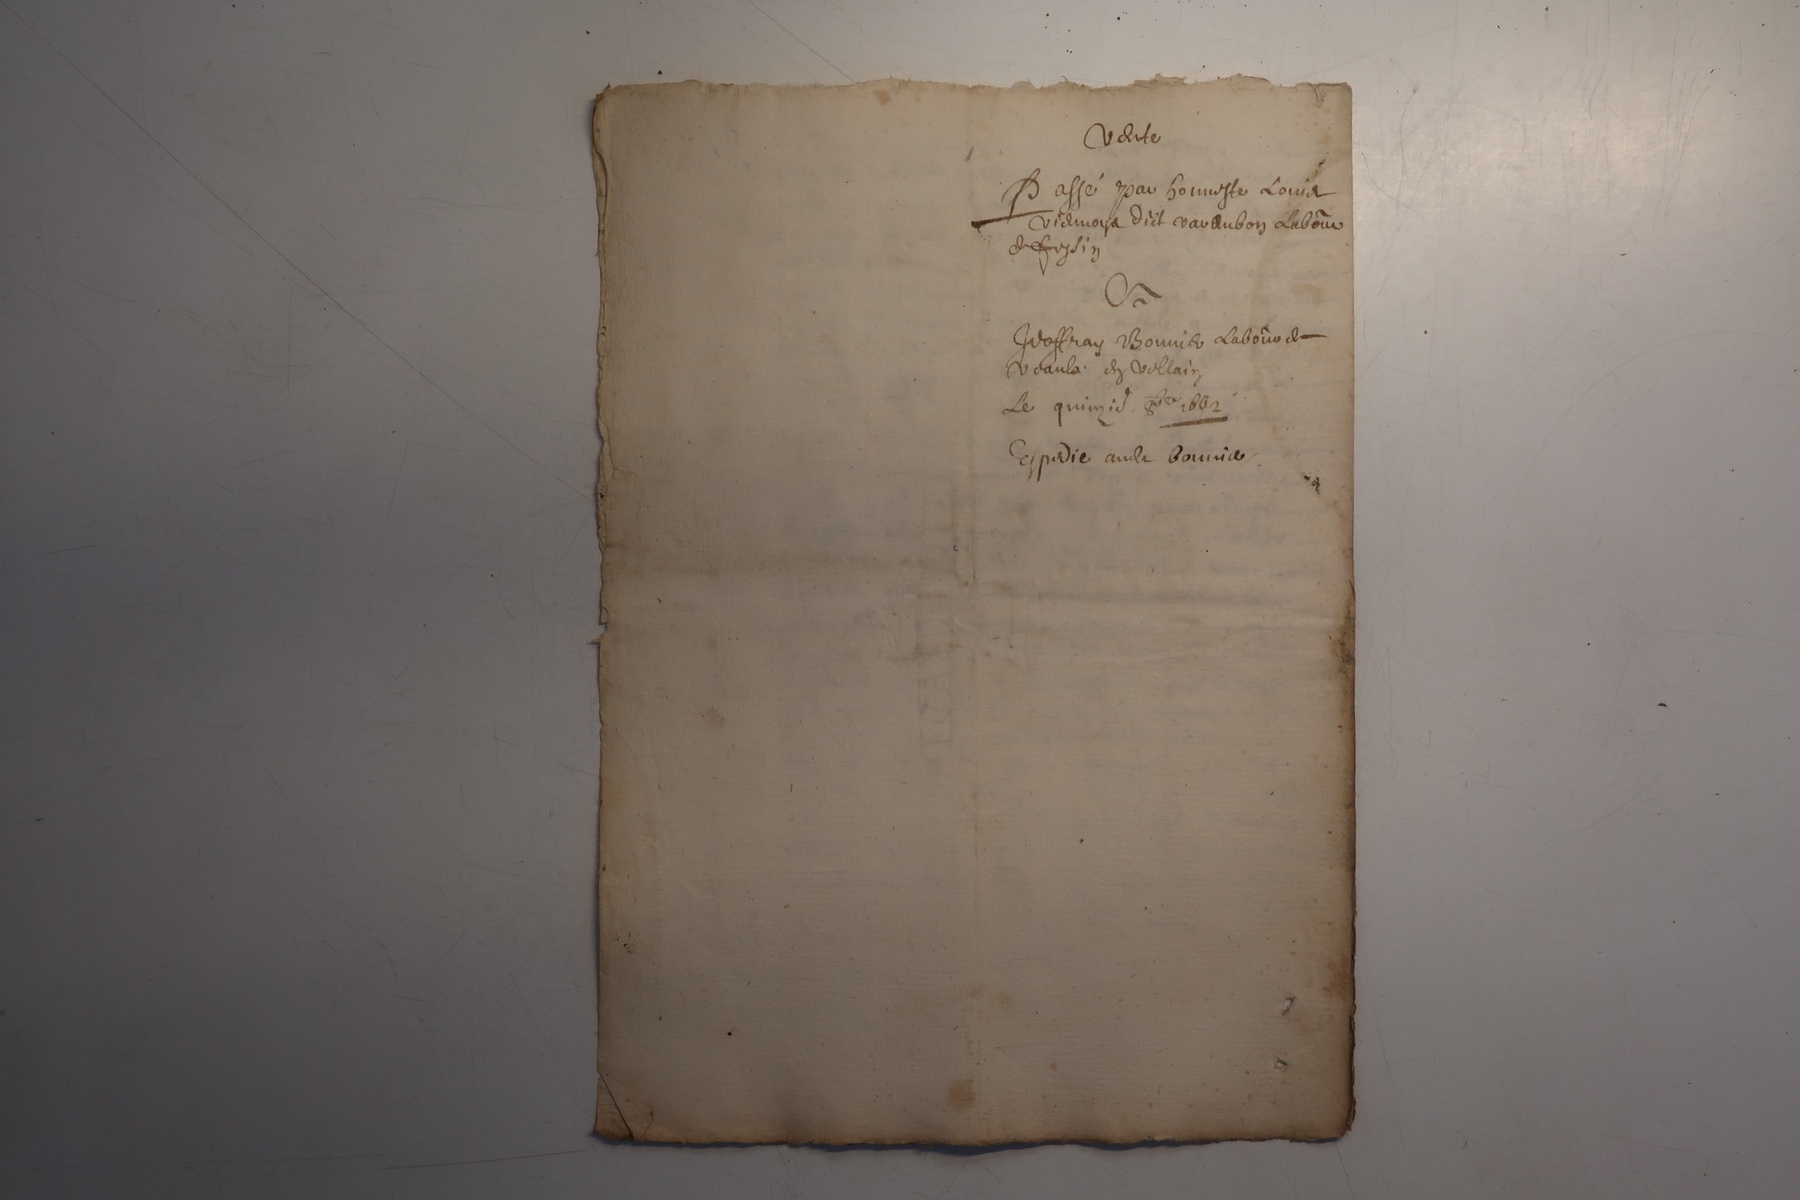 Vente
Passé par honneste Louis
dict varanbon Labour̃
de
A
Geoffray Bonnier Labour̃ de
en Vellain
Le quinzie. 8bre 1662
Expedie audit bonnier